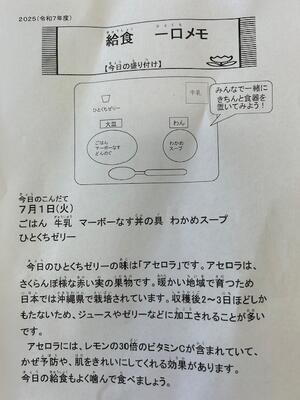 2025(令和7年度)
給食 一口メモ
【今日の盛り付け】
牛乳
ひとくちゼリー
みんなで一緒に
きちんと食器を
置いてみよう!
大皿
わん
ごはん
マーボーなす
どんのぐ
わかめ
スープ
今日のこんだて
7月1日(火)
ごはん 牛乳 マーボーなす丼の具 わかめスープ
ひとくちゼリー
今日のひとくちゼリーの味は「アセロラ」です。アセロラは、
さくらんぼ様な赤い実の果物です。暖かい地域で育つため
日本では沖縄県で栽培されています。収穫後2~3日ほどしか
もたないため、ジュースやゼリーなどに加工されることが多い
です。
アセロラには、レモンの30倍のビタミンCが含まれていて、
かぜ予防や、肌をきれいにしてくれる効果があります。
今日の給食もよく噛んで食べましょう。